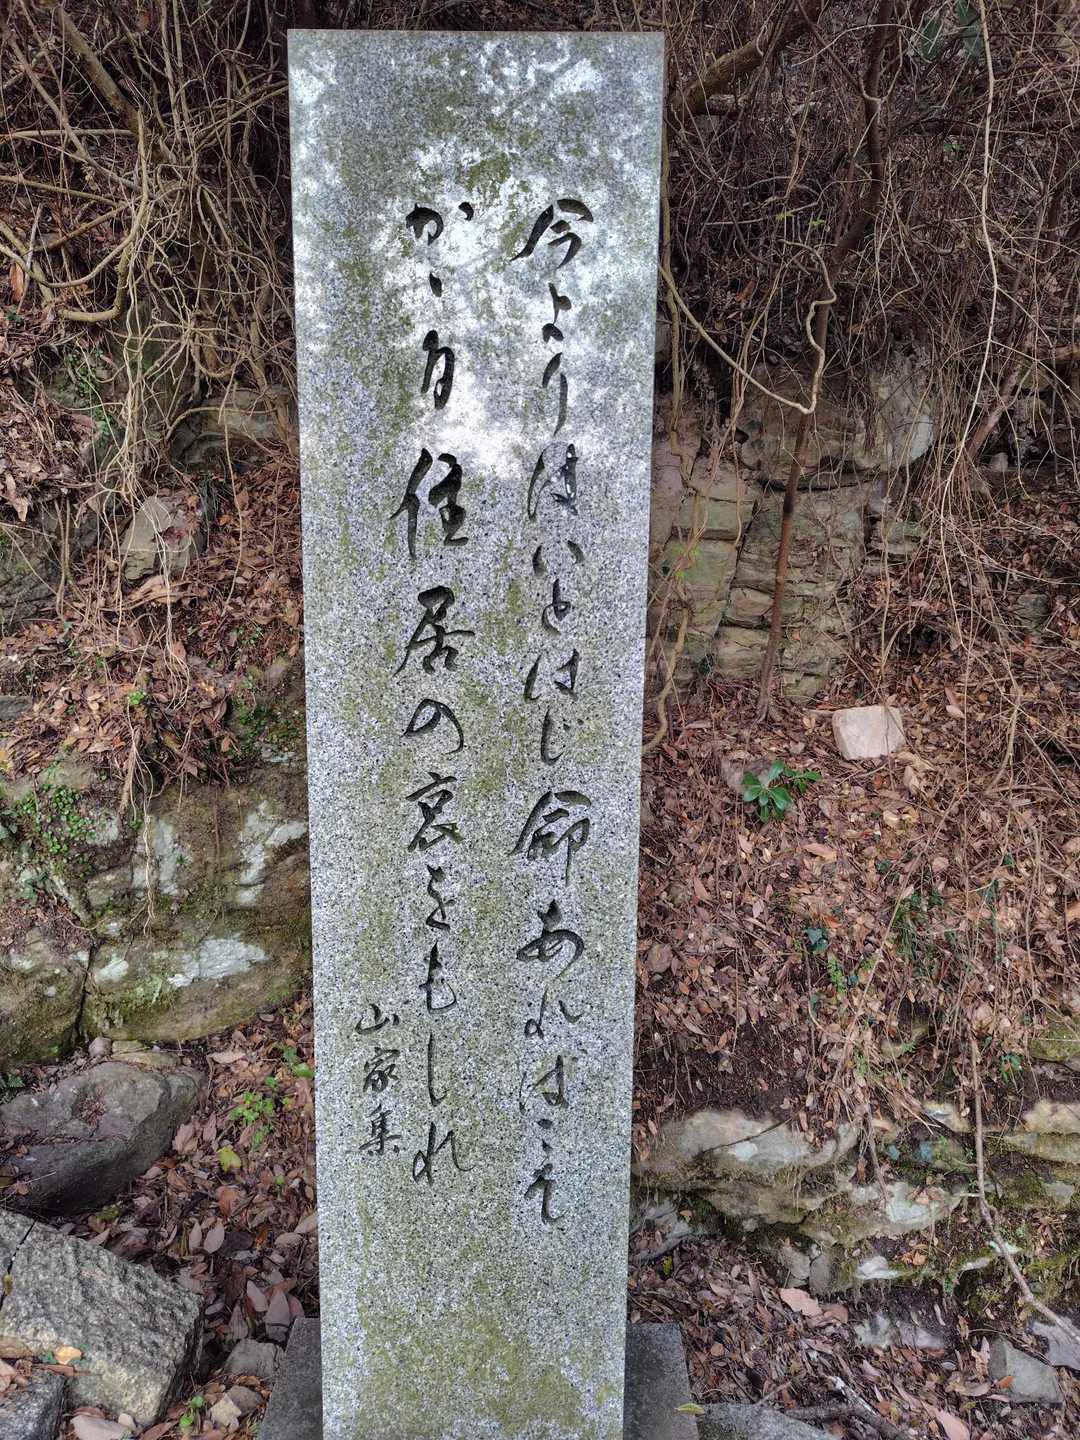 今よりはいとはじ命あればこそ
かゝる住居の哀をもしれ
山家集